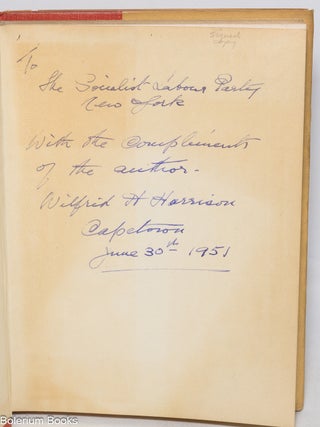 Signed
copy
To
The Socialist Labour Party
New York
With the Compliments
of the author.
Wilfrid H Harrison
Capetown
June 30th 1951
Bolerium Books